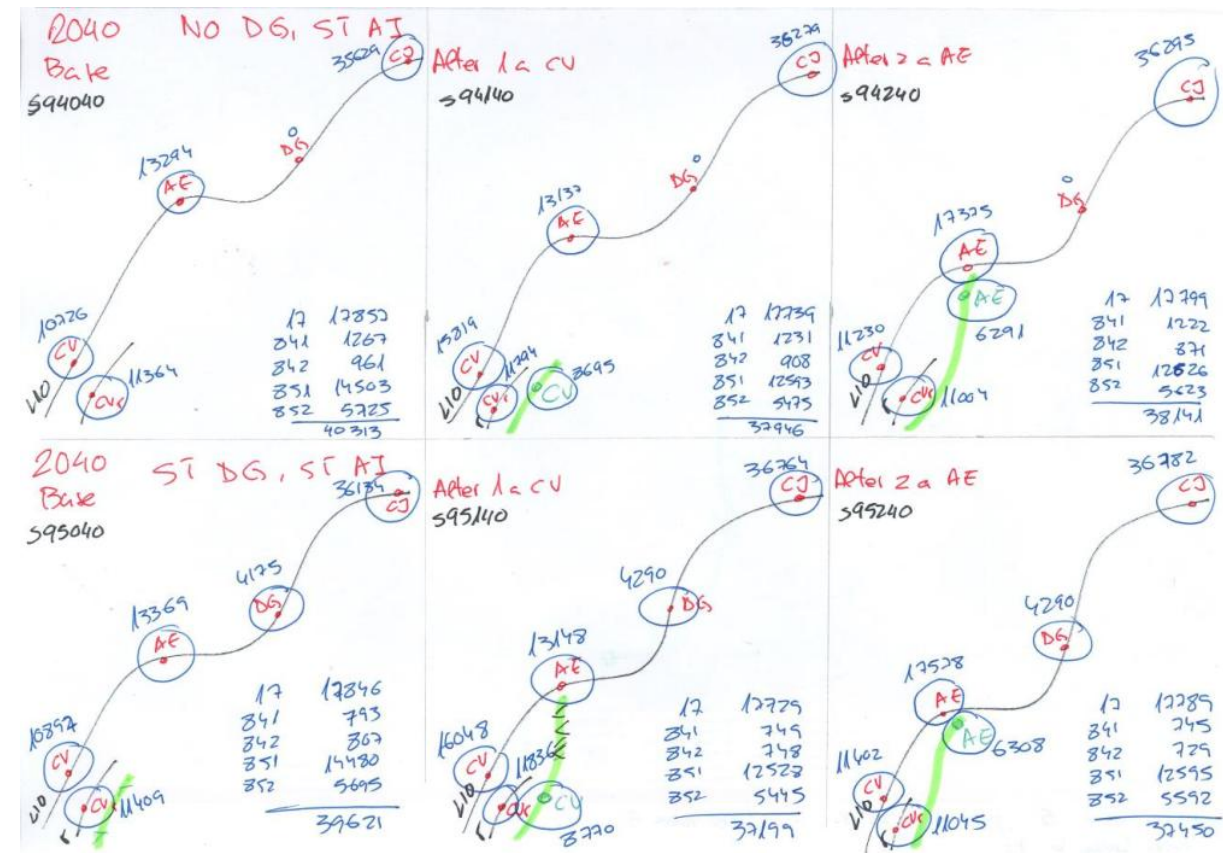 2040 NO DG, ST AI
Base
S94040
35629
CJ
0
DG
13294
AE
10726
CV
L10
CVr
11364
17 17857
841 1267
842 961
851 14503
852 5725
40313
After 1 a CV
S94140
36279
CJ
0
DG
13137
AE
15819
CV
L10
11794
CVr
CV
8695
17 17739
841 1231
842 908
851 12593
852 5475
37946
After 2 a AE
S94240
36295
CJ
0
DG
17375
AE
AE
6291
11230
CV
L10
CVr
11004
17 17799
841 1222
842 871
851 12626
852 5623
38141
2040 ST DG, ST AI
Base
S95040
36134
CJ
4175
DG
13369
AE
10897
CV
CV
11409
17 17846
841 793
842 807
851 14480
852 5695
39621
After 1 a CV
S95140
36764
CJ
4290
DG
13148
AE
16048
CV
L10
11836
CVr
CV
8770
17 17729
841 749
842 748
851 12528
852 5445
37199
After 2 a AE
S95240
36782
CJ
4290
DG
17528
AE
AE
6308
11402
CV
L10
CVr
11045
17 17789
841 745
842 729
851 12595
852 5592
37450